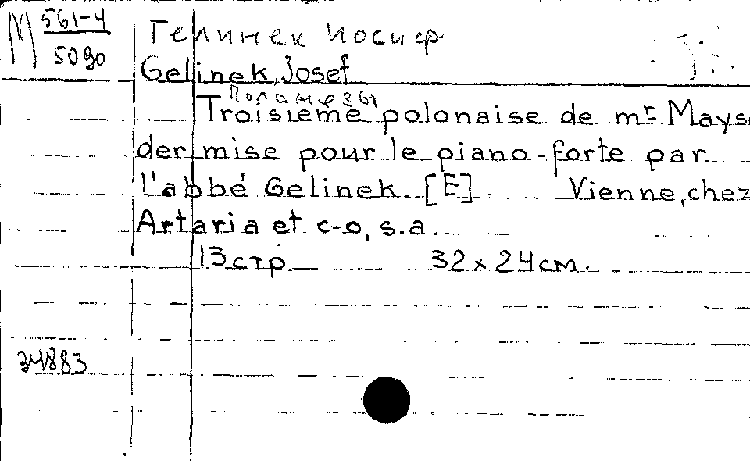 М 561-4
5090
Гелинек Иосиф
Gelinek, Josef
Полонезы
Troisième polonaise de mr Mays
der mise pour le piano-forte par
l'abbé Gelinek. [E] Vienne, chez
Artaria et c-o, s.a.
13 стр 32x24см.
34883